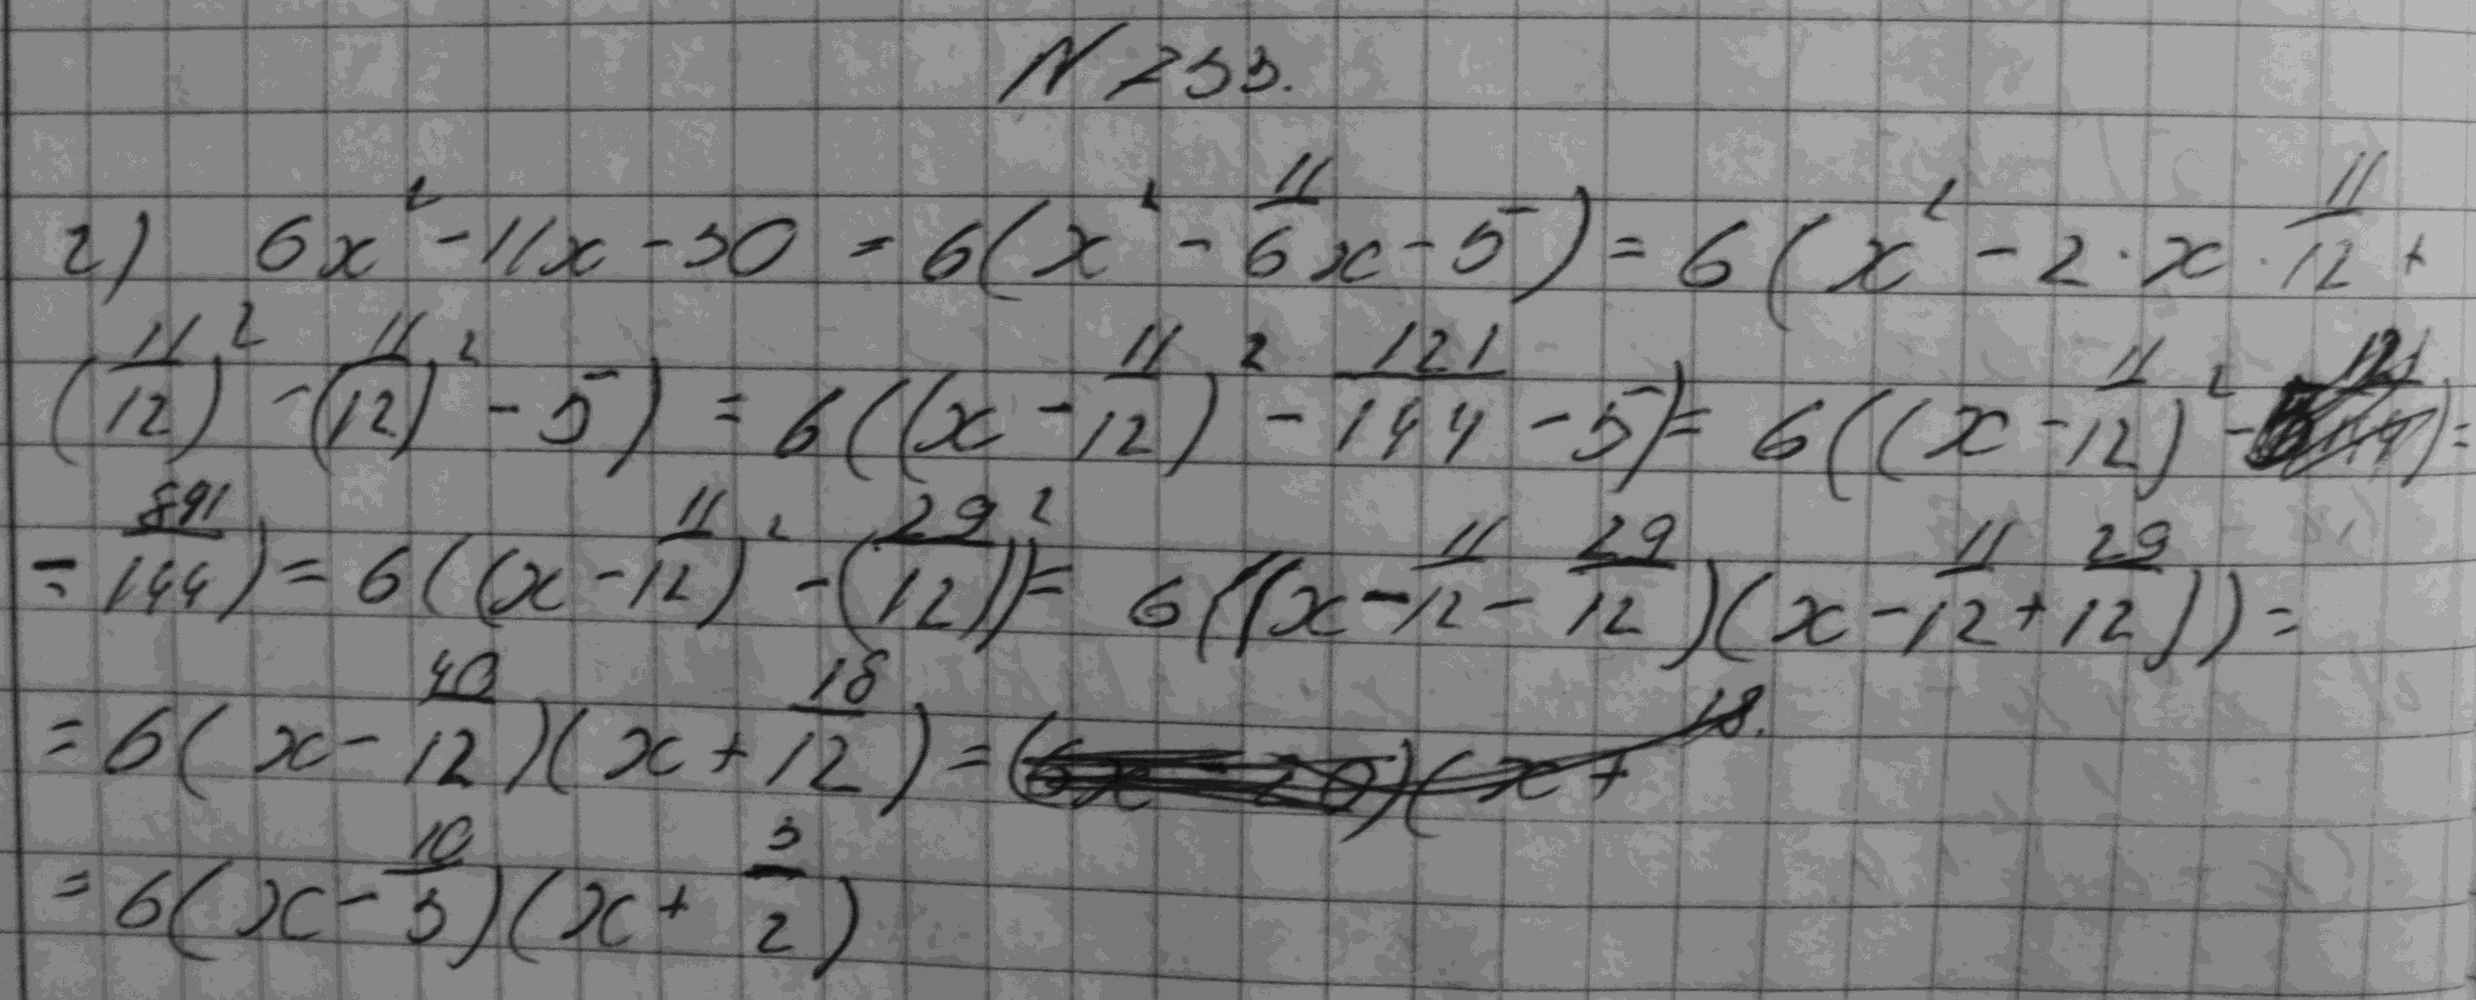 N 233.
г) 6x² - 11x - 30 = 6(x² - 11/6 x - 5) = 6(x² - 2 · x · 11/12 +
(11/12)² - (11/12)² - 5) = 6((x - 11/12)² - 121/144 - 5) = 6((x - 11/12)² -
= 841/144) = 6((x - 11/12)² - (29/12)²) = 6((x - 11/12 - 29/12)(x - 11/12 + 29/12)) =
= 6(x - 40/12)(x + 18/12) =
= 6(x - 10/3)(x + 3/2)